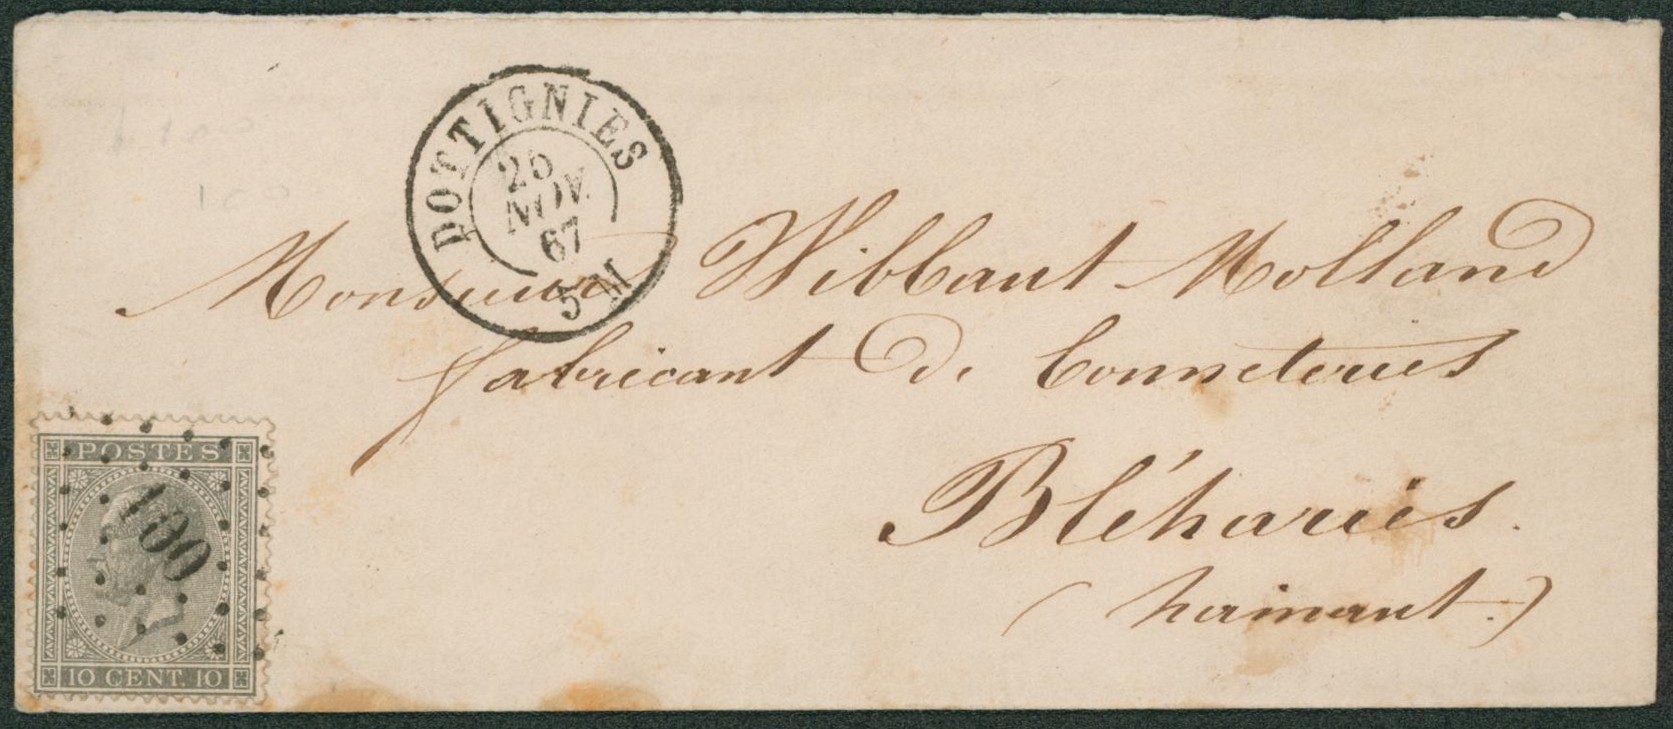 DOTTIGNIES
25
NOV
67
5 M
Monsieur Wibbaut Molland
fabricant de Bonneteries
Bléharies.
(hainaut.)
POSTES
100
10 CENT. 10
100